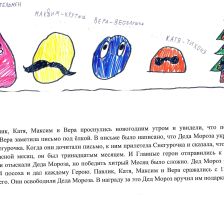 МАКСИМ-КРУТОЙ
ВЕРА-ВЕСЁЛАЯ
КАТЯ-ТИХОНЯ
Катя, Максим и Вера проснулись новогодним утром и увидели, что
Вера заметила письмо под ёлкой. В письме было написано, что Деда Мороза
Когда они дочитали письмо, к ним прилетела Снегурочка и сказала, что
месяц, он был тринадцатым месяцем. И Главные герои отправились к
отыскали Деда Мороза, но победить хитрый Месяц было сложно. Дед Мороз
посоха и дал каждому Герою. Павлик, Катя, Максим и Вера сражались с
Они освободили Деда Мороза. В награду за это Дед Мороз вручил им